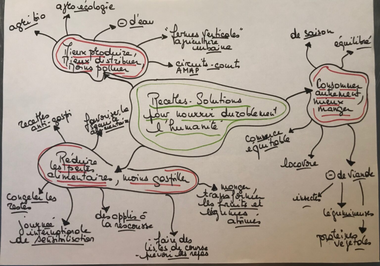 agri bio
agro-écologie
⊖ d'eau
"fermes verticales"
agriculture
urbaine
circuits-court
AMAP
Mieux produire,
Mieux distribuer
Moins polluer
Recettes-Solutions
pour nourrir durablement
l'humanité
de saison
équilibré
Consommer
autrement,
mieux
manger
commerce
équitable
locavore
⊖ de viande
insectes
légumineuses
protéines
végétales
recettes
anti-gaspi
favoriser le
Réduire
les pertes
alimentaires, moins gaspiller
congeler les
restes
journée
internationale
de sensibilisation
des applis à
la rescousse
faire des
listes de course
prévoir les repas
manger
transformés
les fruits et
légumes
abîmés